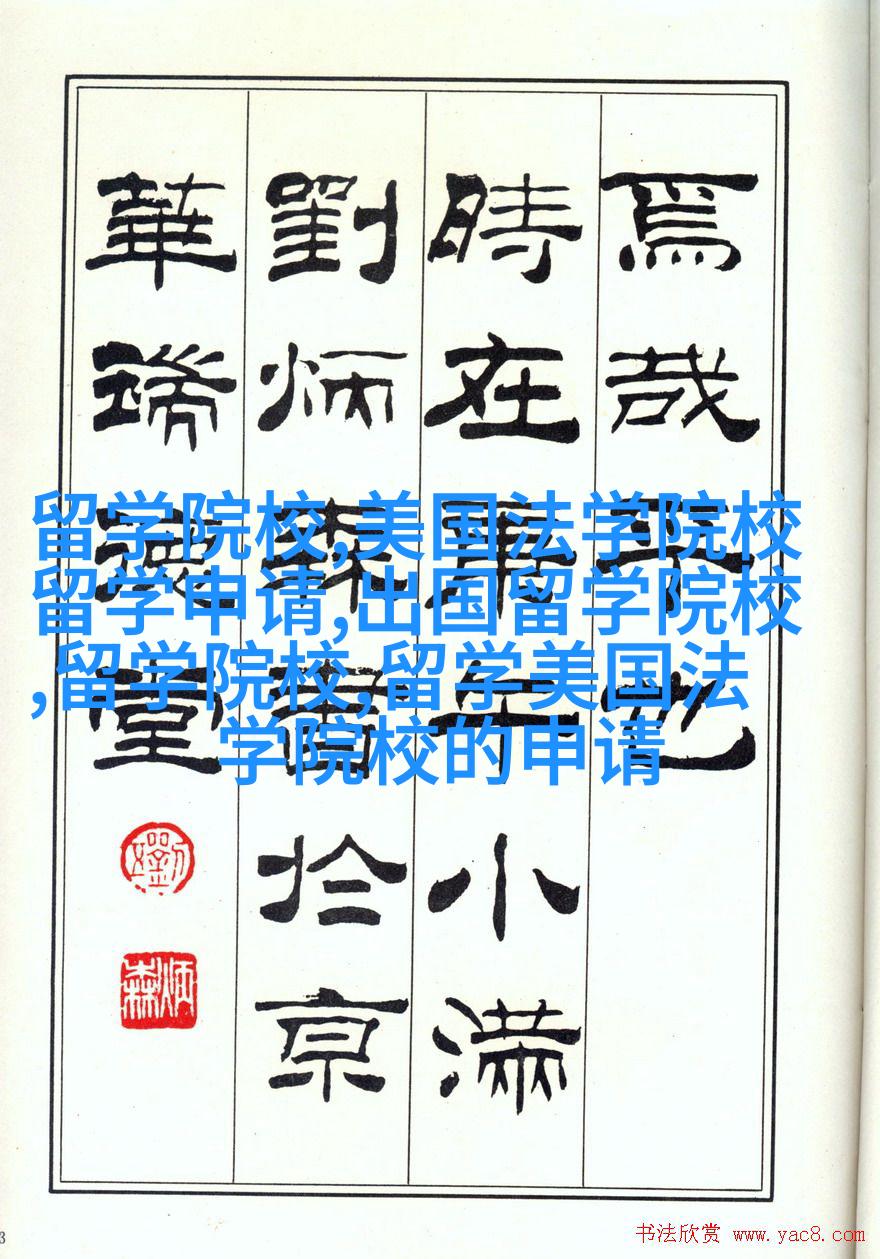 焉哉乎也
時在庚午小滿
劉炳森書於京
華堂
炳森
留学院校,美国法学院校
留学申请,出国留学院校
,留学院校,留学美国法
学院校的申请
3
书法欣赏 www.yac8.com